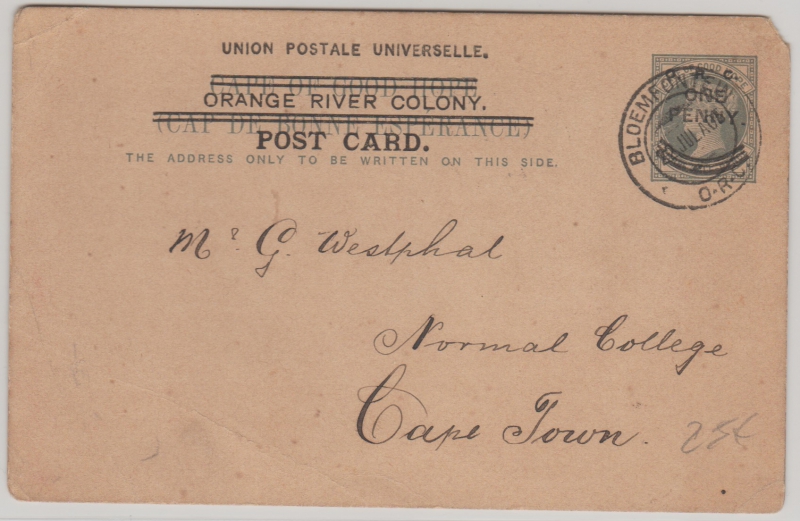 UNION POSTALE UNIVERSELLE.
CAPE OF GOOD HOPE
ORANGE RIVER COLONY.
(CAP DE BONNE ESPERANCE)
POST CARD.
THE ADDRESS ONLY TO BE WRITTEN ON THIS SIDE.
ONE
PENNY.
BLOEMFONTEIN
O.R.C.
Mr G. Westphal
Normal College
Cape Town.
25¢